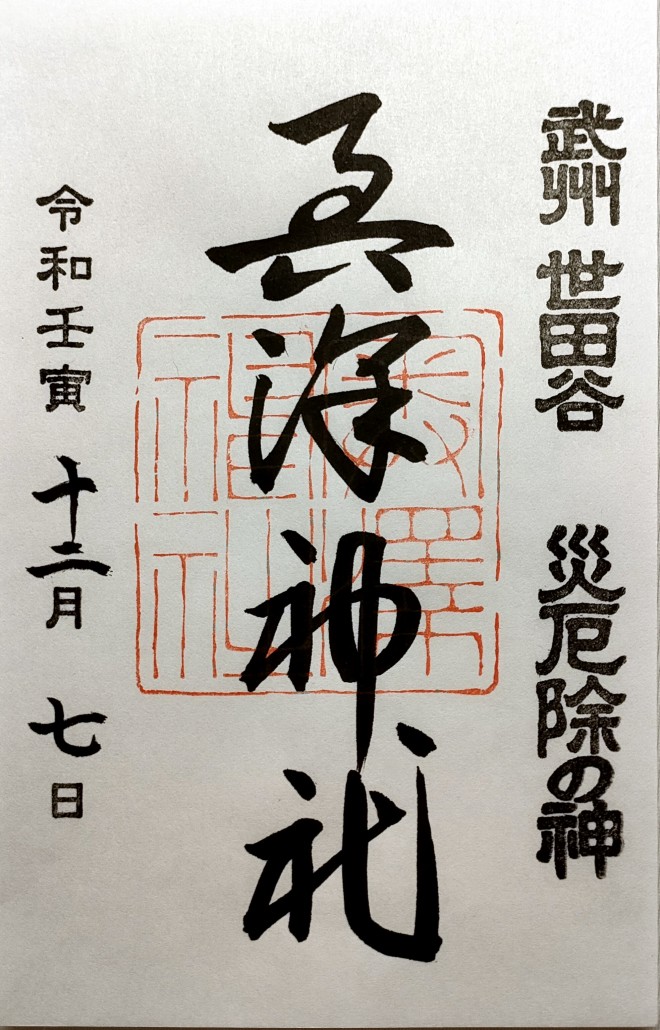 武州 世田谷 災厄除の神
奥澤神社
令和壬寅 十二月 七日